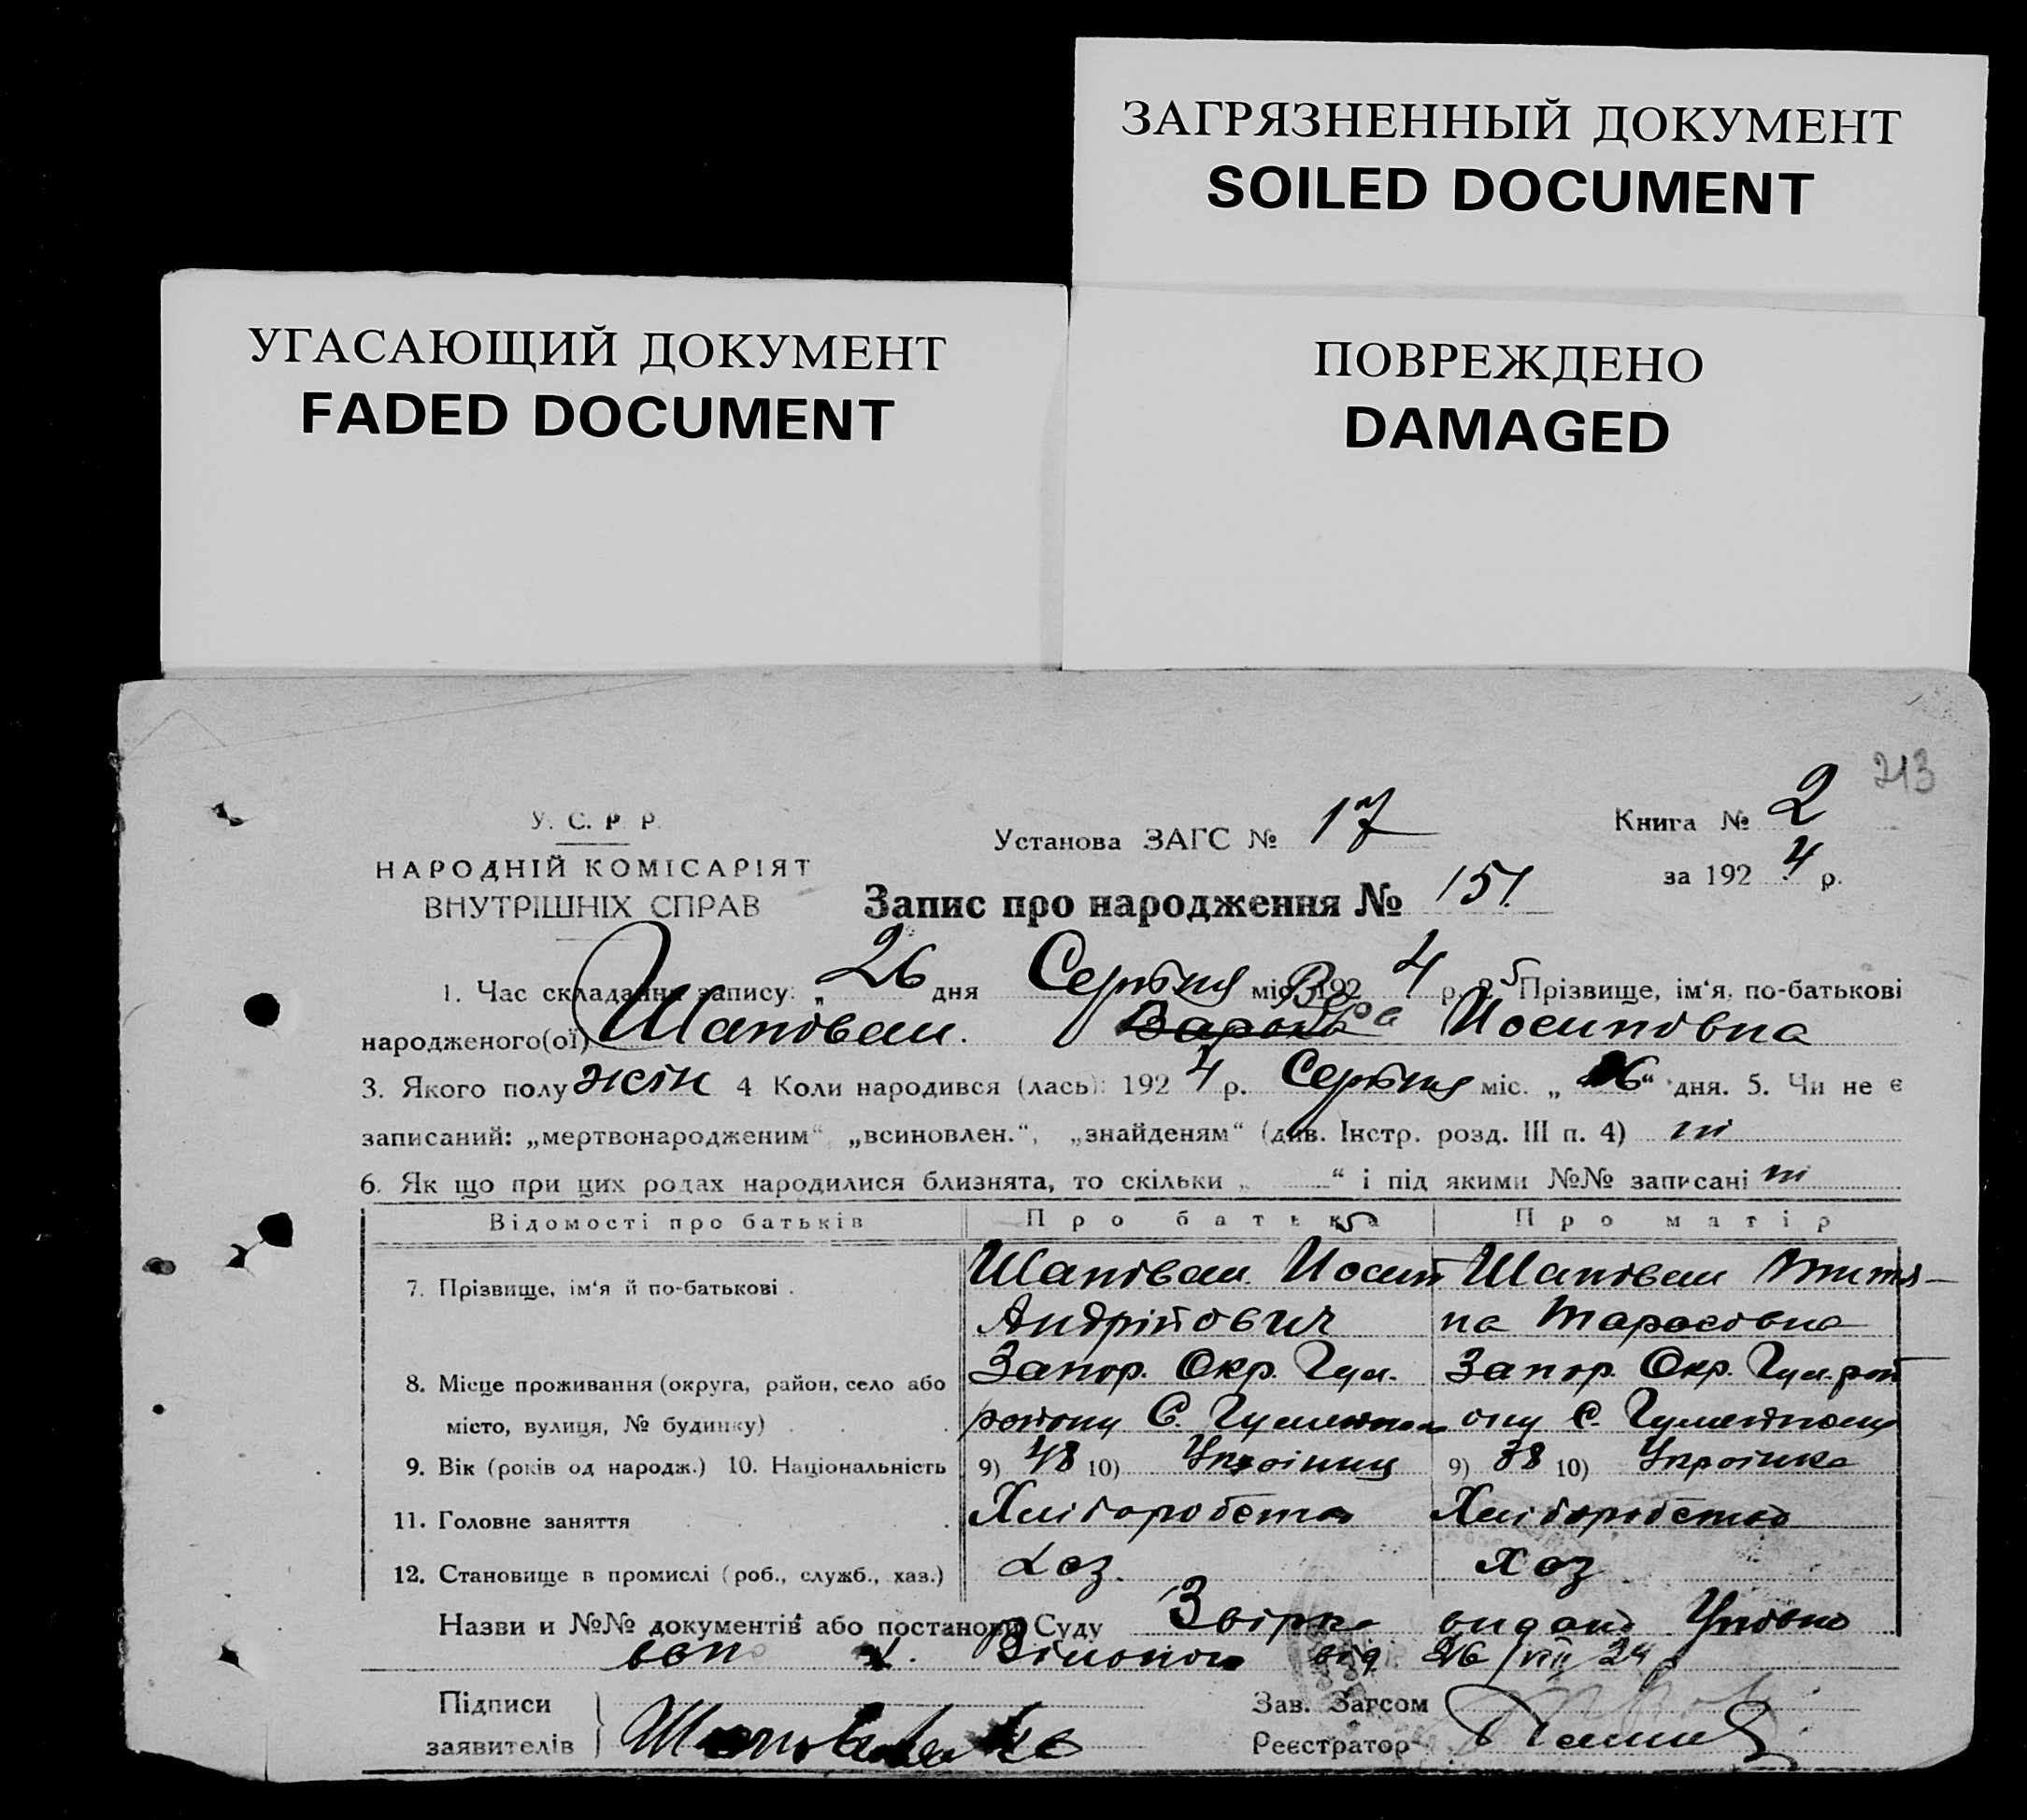 ЗАГРЯЗНЕННЫЙ ДОКУМЕНТ
SOILED DOCUMENT
УГАСАЮЩИЙ ДОКУМЕНТ
FADED DOCUMENT
ПОВРЕЖДЕНО
DAMAGED
213
У. С. Р. Р.
НАРОДНІЙ КОМІСАРІЯТ
ВНУТРІШНІХ СПРАВ
Установа ЗАГС № 17
Книга № 2
за 192 4 р.
Запис про народження № 151
1. Час складання запису: „ 26 дня Серпня міс. 192 4 р. 2. Прізвище, ім'я, по-батькові
Вєра
народженого(ої) Шаповал. Йосиповна
3. Якого полу жін 4 Коли народився (лась): 192 4 р. Серпня міс. „ 26“ дня. 5. Чи не є
записаний: „мертвонародженим“, „всиновлен.“, „знайденям“ (див. Інстр. розд. III п. 4) ні
6. Як що при цих родах народилися близнята, то скільки „ “ і під якими №№ записані ні
Відомості про батьків Про батька Про матір
7. Прізвище, ім'я й по-батькові . Шаповал Йосип Шаповал
Андрійович на Тарасовна
8. Місце проживання (округа, район, село або Запор. Окр. Гул. Запор. Окр. Гул. рай
місто, вулиця, № будинку) . . . району С. ону С.
9. Вік (років од народж.) 10. Національність 9) 48 10) Українец 9) 38 10) Українка
11. Головне заняття Хліборобство Хліборобство
12. Становище в промислі (роб., служб., хаз.) Хоз. Хоз
Назви и №№ документів або постанови Суду видано
від 26/VIII 24
Підписи
заявителів
Зав. Загсом
Реєстратор